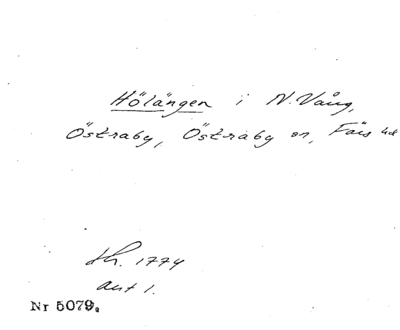 Hölängen i N. Vång,
Östraby, Östraby sn, Färs hd
sk. 1774
akt 1.
Nr 5079.